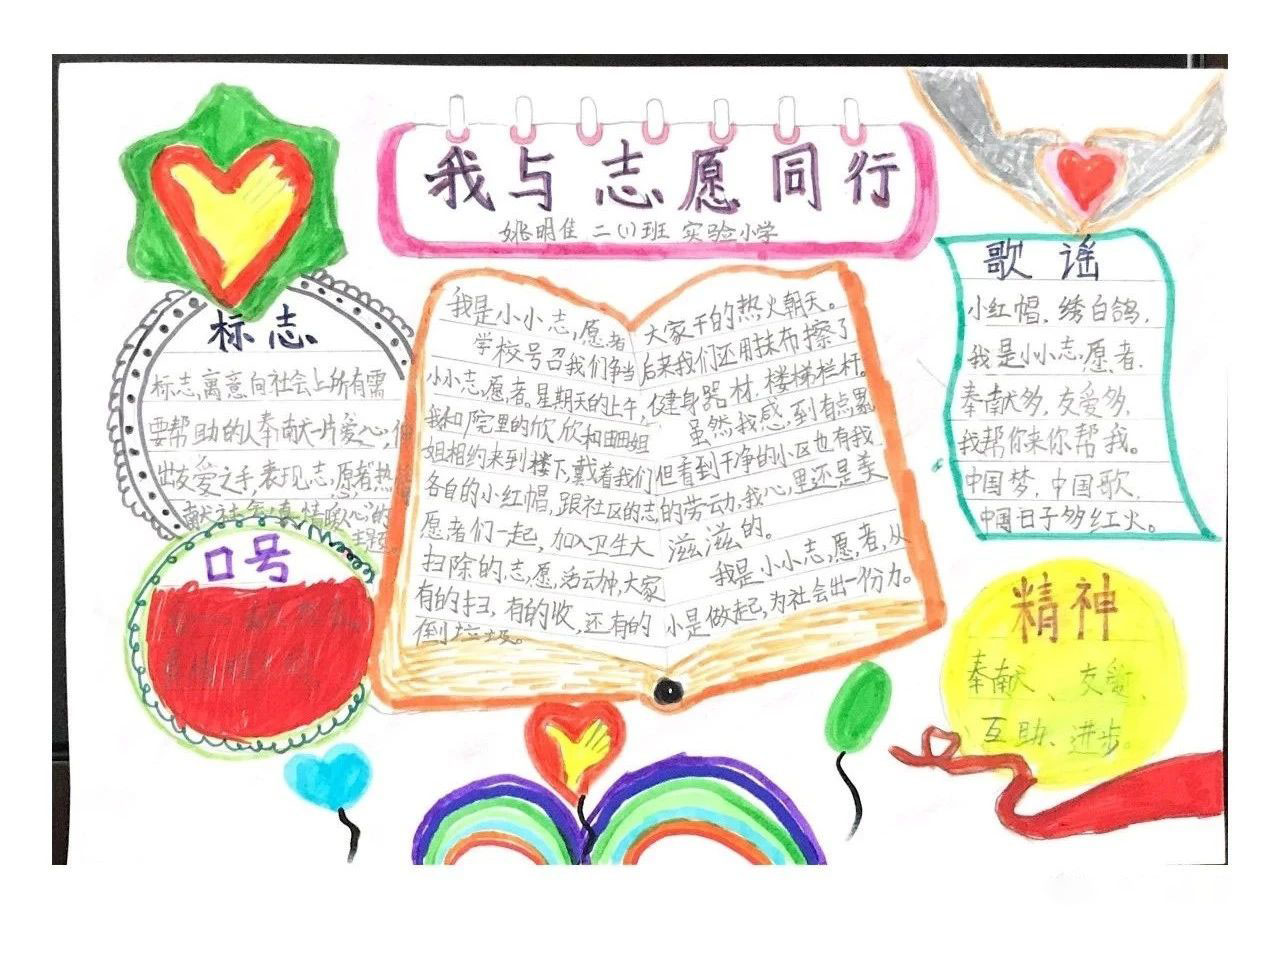 我与志愿同行
姚明佳 二(1)班 实验小学
标志
标志,寓意向社会上所有需
要帮助的人奉献一片爱心,伸
出友爱之手,表现志愿者热
献社会"真情暖人心"的
主题。
口号
我是小小志愿者
学校号召我们争当
小小志愿者。星期天的上午,
我和院里的欣欣和姐姐
姐相约来到楼下,戴着我们
各自的小红帽,跟社区的志
愿者们一起,加入卫生大
扫除的志愿活动中,大家
有的扫,有的收,还有的
倒垃圾。
大家干的热火朝天。
后来我们还用抹布擦了
健身器材,楼梯栏杆。
虽然我感到有点累
但看到干净的小区也有我
的劳动,我心里还是美
滋滋的。
我是小小志愿者,从
小是做起,为社会出一份力。
歌谣
小红帽,绣白鸽,
我是小小志愿者,
奉献多,友爱多,
我帮你来你帮我。
中国梦,中国歌,
中国日子多红火。
精神
奉献、友爱、
互助、进步。